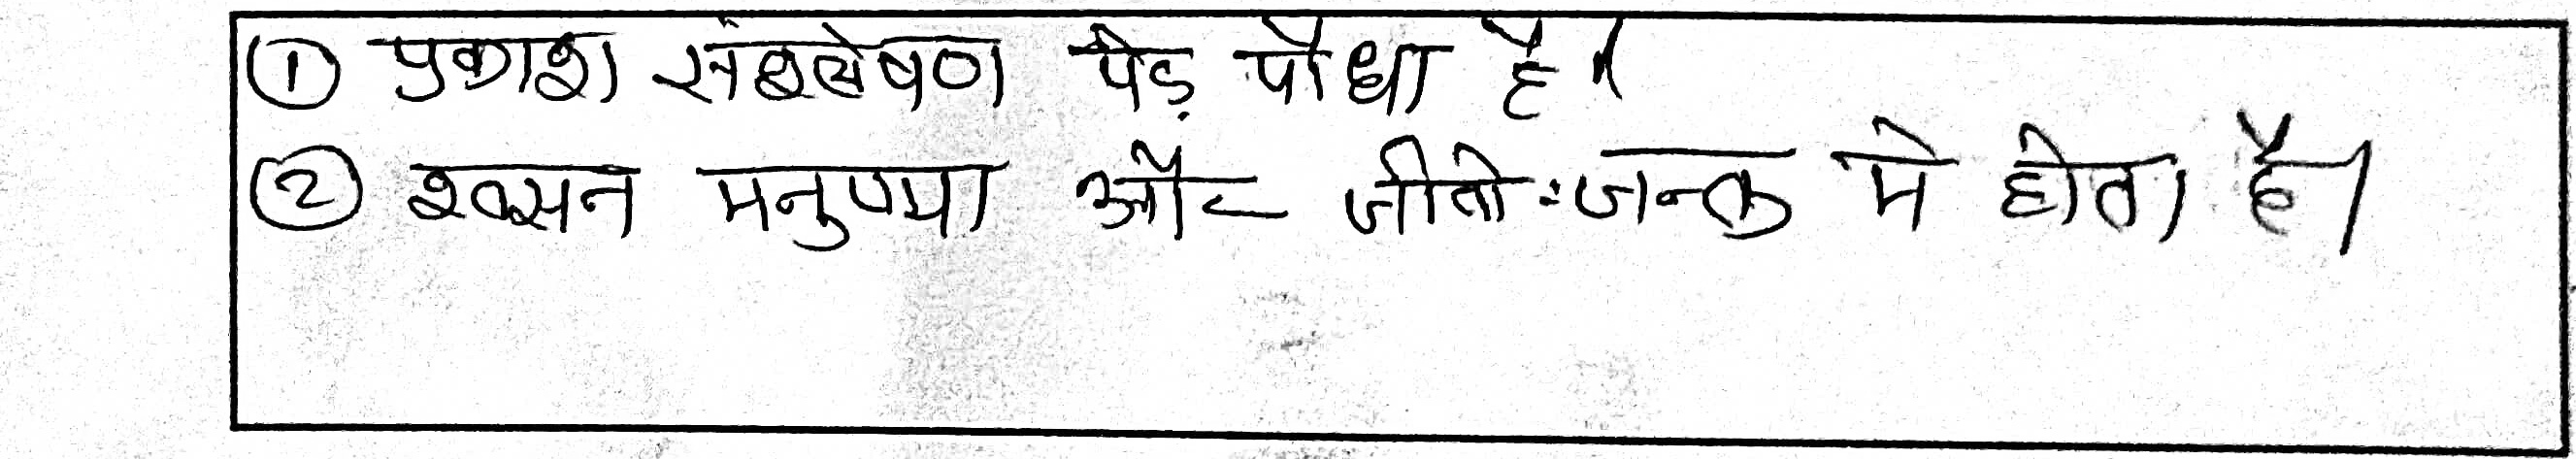 ① प्रकाश संश्लेषण पेड़ पौधा है।
② श्वसन मनुष्या और जीतो-जन्तु मे होता है।